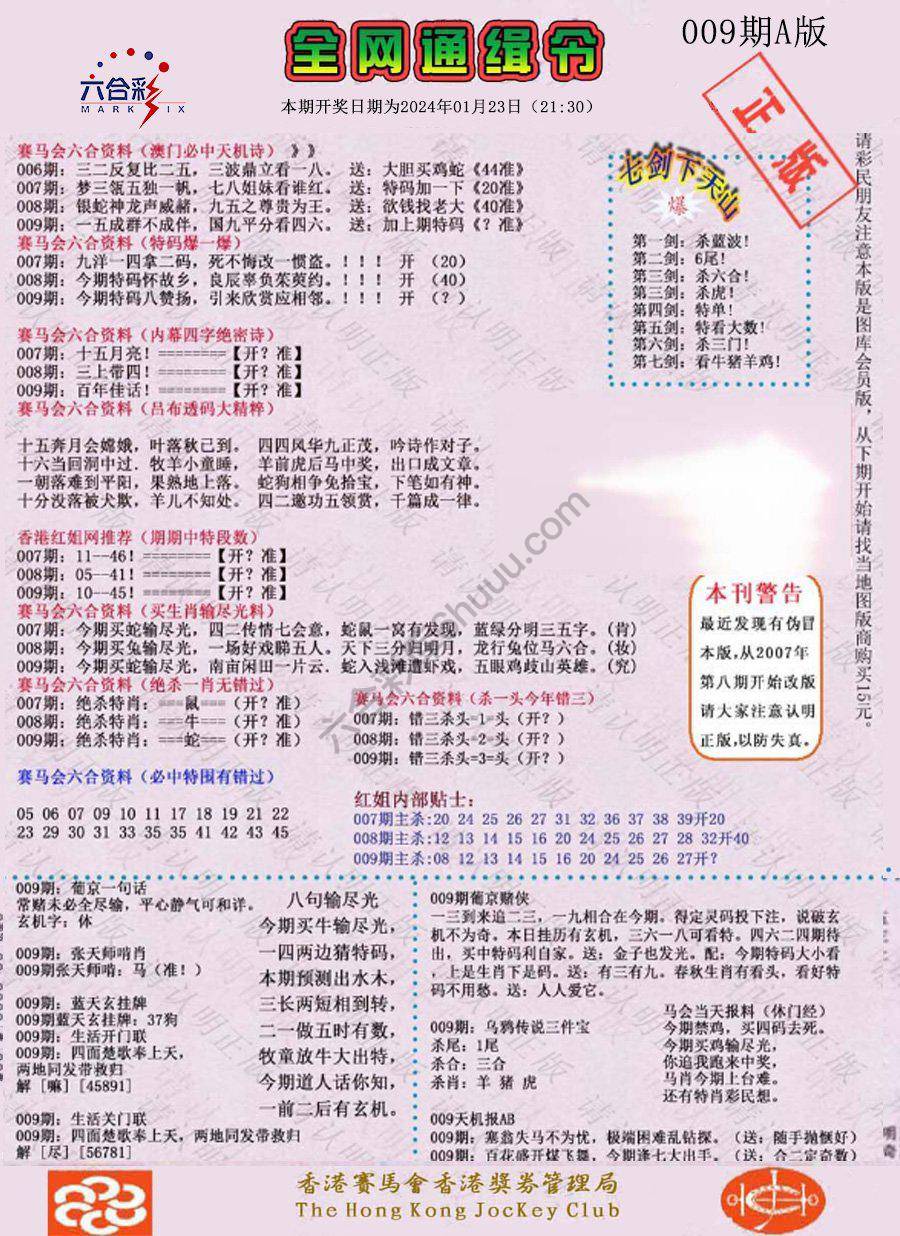 全网通缉令
009期A版
六合彩
MARK SIX
本期开奖日期为2024年01月23日（21:30）
正版
赛马会六合资料（澳门必中天机诗）》》
006期：三二反复比二五，三波鼎立看一八。 送：大胆买鸡蛇《44准》
007期：梦三瓴五独一帆，七八姐妹看谁红。 送：特码加一下《20准》
008期：银蛇神龙声威赭，九五之尊贵为王。 送：欲钱找老大《40准》
009期：一五成群不成伴，国九平分看四六。 送：加上期特码《？准》
赛马会六合资料（特码爆一爆）
007期：九洋一四拿二码，死不悔改一惯盗。！！！ 开 （20）
008期：今期特码怀故乡，良辰辜负茱萸约。！！！ 开 （40）
009期：今期特码八赞扬，引来欣赏应相邻。！！！ 开 （？）
赛马会六合资料（内幕四字绝密诗）
007期：十五月亮！========【开？准】
008期：三上带四！========【开？准】
009期：百年佳话！========【开？准】
赛马会六合资料（吕布透码大精粹）
十五奔月会嫦娥，叶落秋已到。 四四风华九正茂，吟诗作对子。
十六当回洞中过．牧羊小童睡， 羊前虎后马中奖，出口成文章。
一朝落难到平阳，果熟地上落。 蛇狗相争兔拾宝，下笔如有神。
十分没落被犬欺，羊儿不知处。 四二邀功五领赏，千篇成一律。
香港红姐网推荐（期期中特段数）
007期：11--46！========【开？准】
008期：05--41！========【开？准】
009期：10--45！========【开？准】
赛马会六合资料（买生肖输尽光料）
007期：今期买蛇输尽光，四二传情七会意，蛇鼠一窝有发现，蓝绿分明三五字。(肖)
008期：今期买兔输尽光，一场好戏睇五人。天下三分归明月，龙行兔位马六合。(妆)
009期：今期买蛇输尽光，南亩闲田一片云．蛇入浅滩遭虾戏，五眼鸡歧山英雄。(究)
赛马会六合资料（绝杀一肖无错过）
007期：绝杀特肖：===鼠===（开？准）
008期：绝杀特肖：===牛===（开？准）
009期：绝杀特肖：===蛇===（开？准）
赛马会六合资料（杀一头今年错三）
007期：错三杀头=1=头（开？）
008期：错三杀头=2=头（开？）
009期：错三杀头=3=头（开？）
赛马会六合资料（必中特围有错过）
05 06 07 09 10 11 17 18 19 21 22
23 29 30 31 33 35 35 41 42 43 45
红姐内部贴士：
007期主杀:20 24 25 26 27 31 32 36 37 38 39开20
008期主杀:12 13 14 15 16 20 24 25 26 27 28 32开40
009期主杀:08 12 13 14 15 16 20 24 25 26 27开？
七剑下天山
爆
第一剑：杀蓝波！
第二剑：6尾！
第三剑：杀六合！
第三剑：杀虎！
第四剑：特单！
第五剑：特看大数！
第六剑：杀三门！
第七剑：看牛猪羊鸡！
请彩民朋友注意本版是图库会员版，从下期开始请找当地图版商购买15元。
本刊警告
最近发现有伪冒
本版,从2007年
第八期开始改版
请大家注意认明
正版,以防失真。
009期：葡京一句话
常赌未必全尽输，平心静气可和详。
玄机字：体
009期：张天师啃肖
009期张天师啃：马（准！）
009期：蓝天玄挂牌
009期蓝天玄挂牌：37狗
009期：生活开门联
009期：四面楚歌奉上天，
两地同发带救归
解［嘛］[45891]
009期：生活关门联
009期：四面楚歌奉上天，两地同发带救归
解［尽］[56781]
八句输尽光
今期买牛输尽光，
一四两边猜特码，
本期预测出水木，
三长两短相到转，
二一做五时有数，
牧童放牛大出特，
今期道人话你知，
一前二后有玄机。
009期葡京赌侠
一三到来追二三，一九相合在今期。得定灵码投下注，说破玄
机不为奇。本日挂历有玄机，三六一八可看特。四六二四期待
出，买中特码利自家。送：金子也发光。配：今期特码大小看
，上是生肖下是码。送：有三有九。春秋生肖有看头，看好特
码不用愁。送：人人爱它。
009期：乌鸦传说三件宝
杀尾：1尾
杀合：三合
杀肖：羊 猪 虎
马会当天报料（休门经）
今期禁鸡，买四码去死。
今期买鸡输尽光，
你追我跑来中奖，
马肖今期上台难。
还有特肖彩民想。
009天机报AB
009期：塞翁失马不为忧，极端困难乱钻探。（送：随手抛惬好）
009期：百花盛开煤飞舞，今期逢七大出手。（送：合二定奇数）
香港賽馬會香港獎券管理局
The Hong Kong JocKey Club